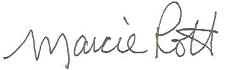 Marcie Roth